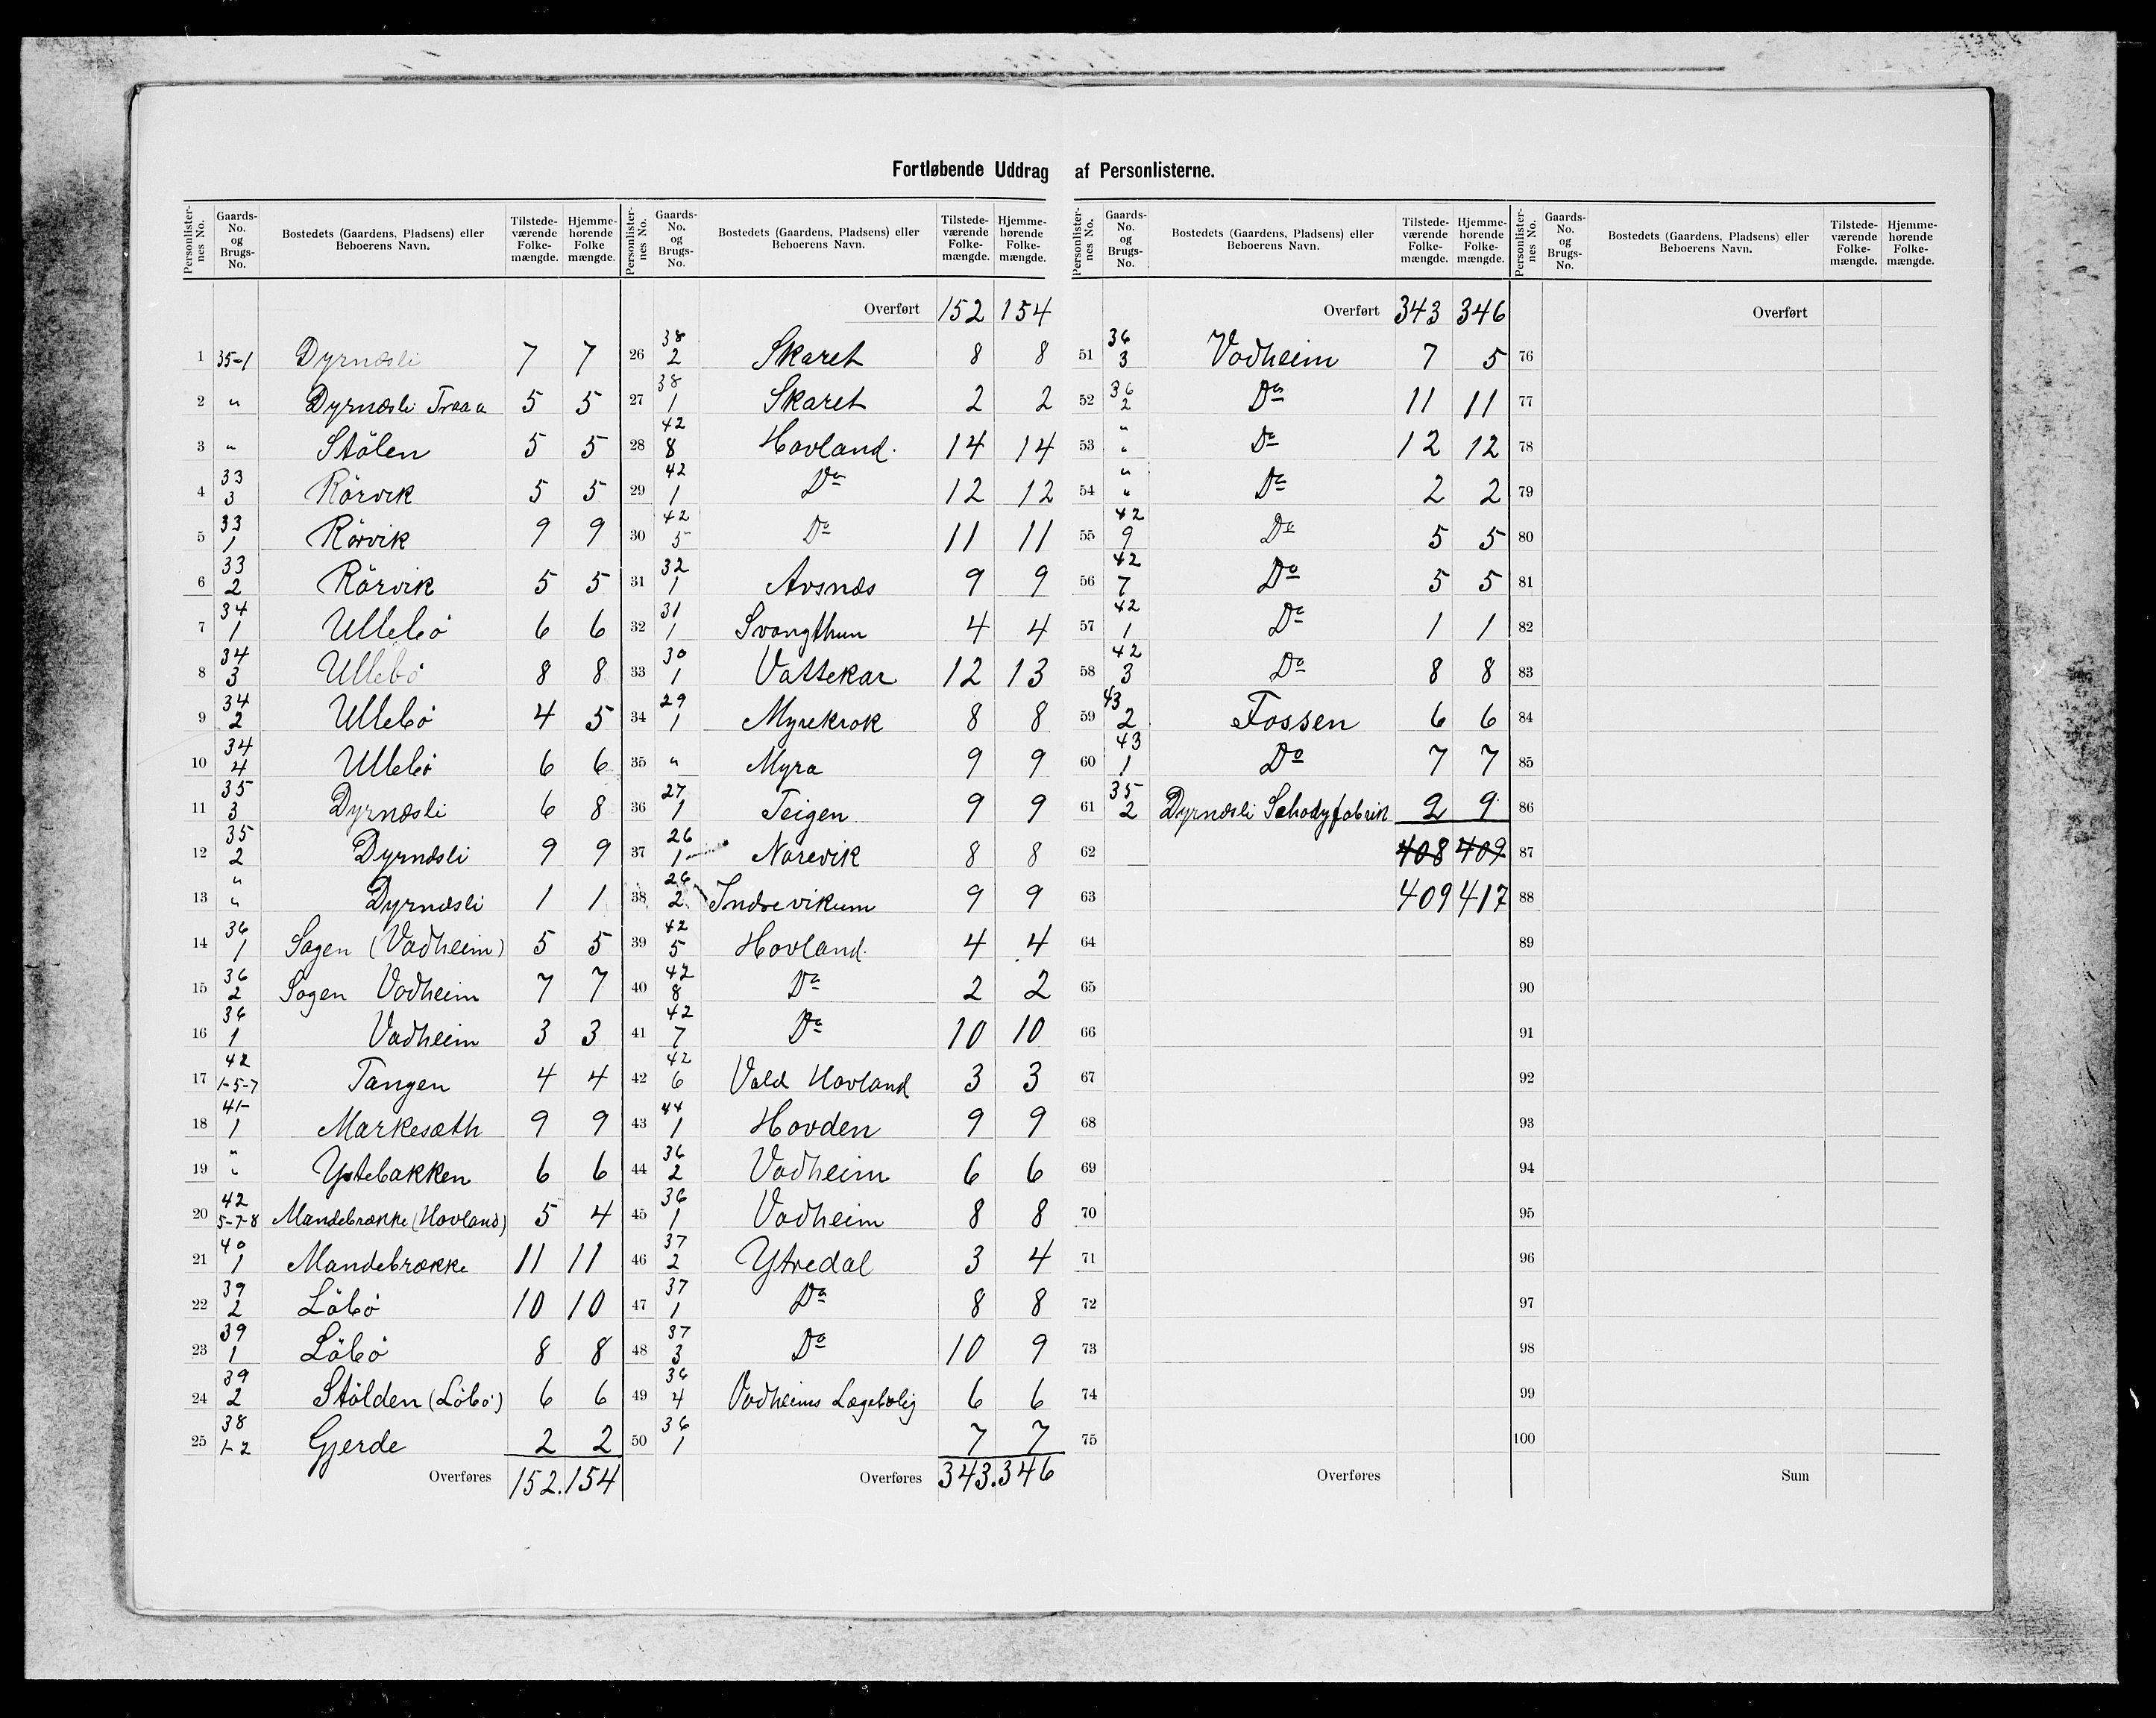 Fortløbende Uddrag af Personlisterne.
Personlisternes No. | Gaards-No. og Brugs-No. | Bostedets (Gaardens, Pladsens) eller Beboerens Navn. | Tilstedeværende Folkemængde. | Hjemmehørende Folkemængde.
1 35-1 Dyrnæsli 7 7
2 " Dyrnæsli Traaa 5 5
3 " Stölen 5 5
4 33 3 Rörvik 5 5
5 33 1 Rörvik 9 9
6 33 2 Rörvik 5 5
7 34 1 Ullebö 6 6
8 34 3 Ullebö 8 8
9 34 2 Ullebö 4 5
10 34 4 Ullebö 6 6
11 35 3 Dyrnæsli 6 8
12 35 2 Dyrnæsli 9 9
13 " " Dyrnæsli 1 1
14 36 1 Sagen (Vadheim) 5 5
15 36 2 Sagen Vadheim 7 7
16 36 1 Vadheim 3 3
17 42 1-5-7 Tangen 4 4
18 41- 1 Markesæth 9 9
19 " " Ystebakken 6 6
20 42 5-7-8 Mandebrække (Hovland) 5 4
21 40 1 Mandebrække 11 11
22 39 2 Löbö 10 10
23 39 1 Löbö 8 8
24 39 2 Stölden (Löbö) 6 6
25 38 1-2 Gjerde 2 2
Overføres 152. 154
Overført 152 154
26 38 2 Skaret 8 8
27 38 1 Skaret 2 2
28 42 8 Hovland. 14 14
29 42 1 Do 12 12
30 42 5 Do 11 11
31 32 1 Avsnæs 9 9
32 31 1 Svangthun 4 4
33 30 1 Vattekar 12 13
34 29 1 Myrekrok 8 8
35 " Myra 9 9
36 27 1 Teigen 9 9
37 26 1 Narevik 8 8
38 26 2 Indrevikum 9 9
39 42 5 Hovland. 4 4
40 42 8 Do 2 2
41 42 7 Do 10 10
42 42 6 Vald Hovland 3 3
43 44 1 Hovden 9 9
44 36 2 Vadheim 6 6
45 36 1 Vadheim 8 8
46 37 2 Ytredal 3 4
47 37 1 Do 8 8
48 37 3 Do 10 9
49 36 4 Vadheims Lægebolig 6 6
50 36 1 7 7
Overføres 343. 346
Overført 343 346
51 36 3 Vadheim 7 5
52 36 2 Do 11 11
53 " " Do 12 12
54 " " Do 2 2
55 42 9 Do 5 5
56 42 7 Do 5 5
57 42 1 Do 1 1
58 42 3 Do 8 8
59 43 2 Fossen 6 6
60 43 1 Do 7 7
61 35 2 Dyrnæsli Schodyfabrik 2 9
62 408 409
63 409 417
64
65
66
67
68
69
70
71
72
73
74
75
Overføres
Overført
76
77
78
79
80
81
82
83
84
85
86
87
88
89
90
91
92
93
94
95
96
97
98
99
100
Sum